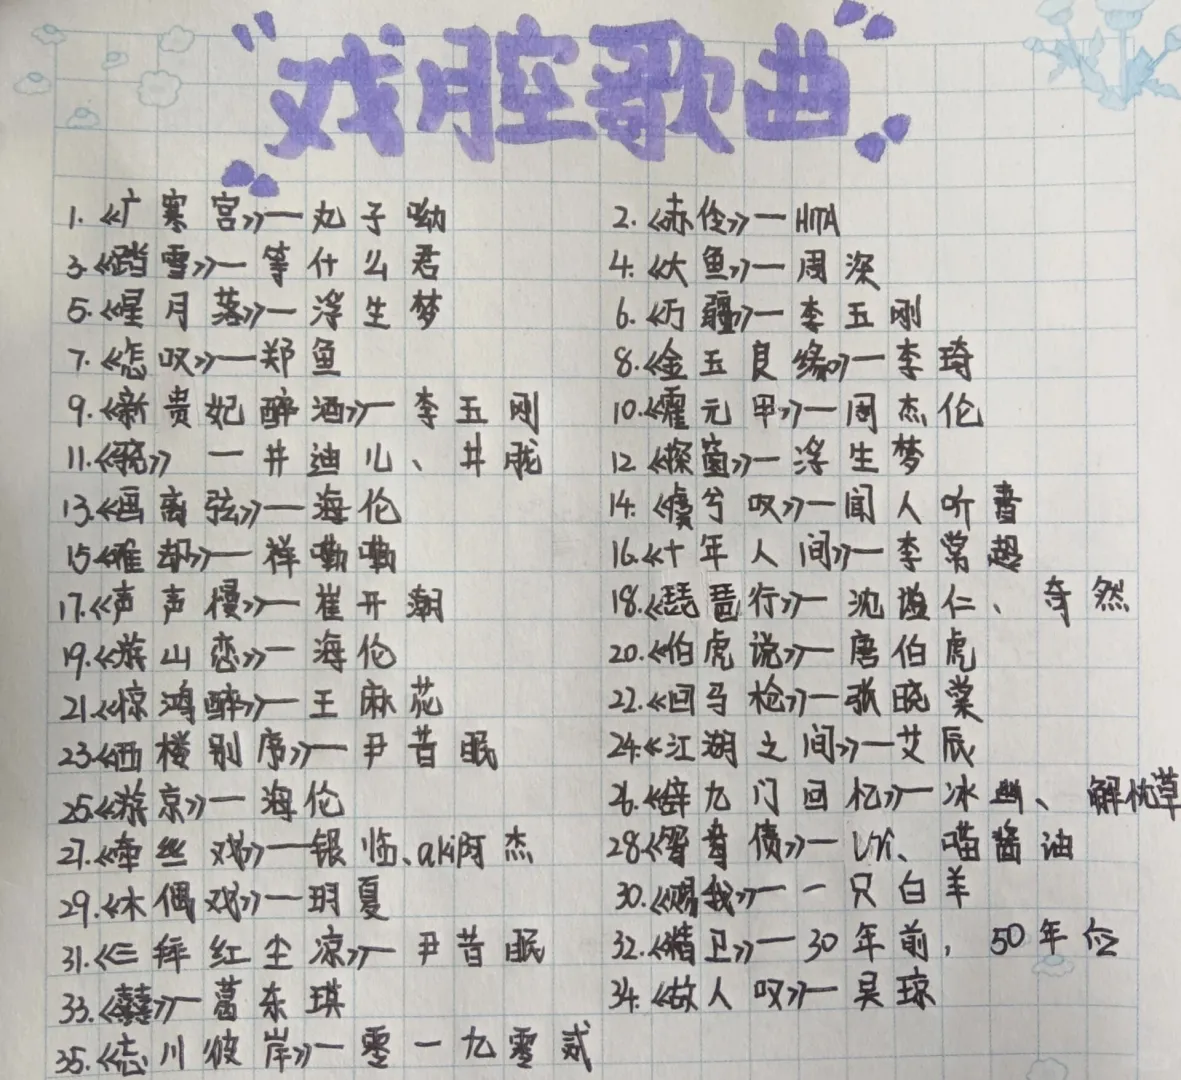 戏腔歌曲
1.《广寒宫》—丸子呦
2.《赤伶》—HITA
3.《踏雪》—等什么君
4.《大鱼》—周深
5.《星月落》—浮生梦
6.《万疆》—李玉刚
7.《怎叹》—郑鱼
8.《金玉良缘》—李琦
9.《新贵妃醉酒》—李玉刚
10.《霍元甲》—周杰伦
11.《骁》—井迪儿、井胧
12.《探窗》—浮生梦
13.《画离弦》—海伦
14.《虞兮叹》—闻人听書
15.《难却》—祥嘞嘞
16.《十年人间》—李常超
17.《声声慢》—崔开潮
18.《琵琶行》—沈谧仁、奇然
19.《游山恋》—海伦
20.《伯虎说》—唐伯虎
21.《惊鸿醉》—王麻花
22.《回马枪》—张晓棠
23.《西楼别序》—尹昔眠
24.《江湖之间》—艾辰
25.《游京》—海伦
26.《辞九门回忆》—冰幽、解忧草
27.《牵丝戏》—银临、aki阿杰
28.《鸳鸯债》—Vk、喵酱油
29.《木偶戏》—玥夏
30.《赐我》—一只白羊
31.《三拜红尘凉》—尹昔眠
32.《精卫》—30年前，50年后
33.《囍》—葛东琪
34.《故人叹》—吴琼
35.《忘川彼岸》—零一九零贰